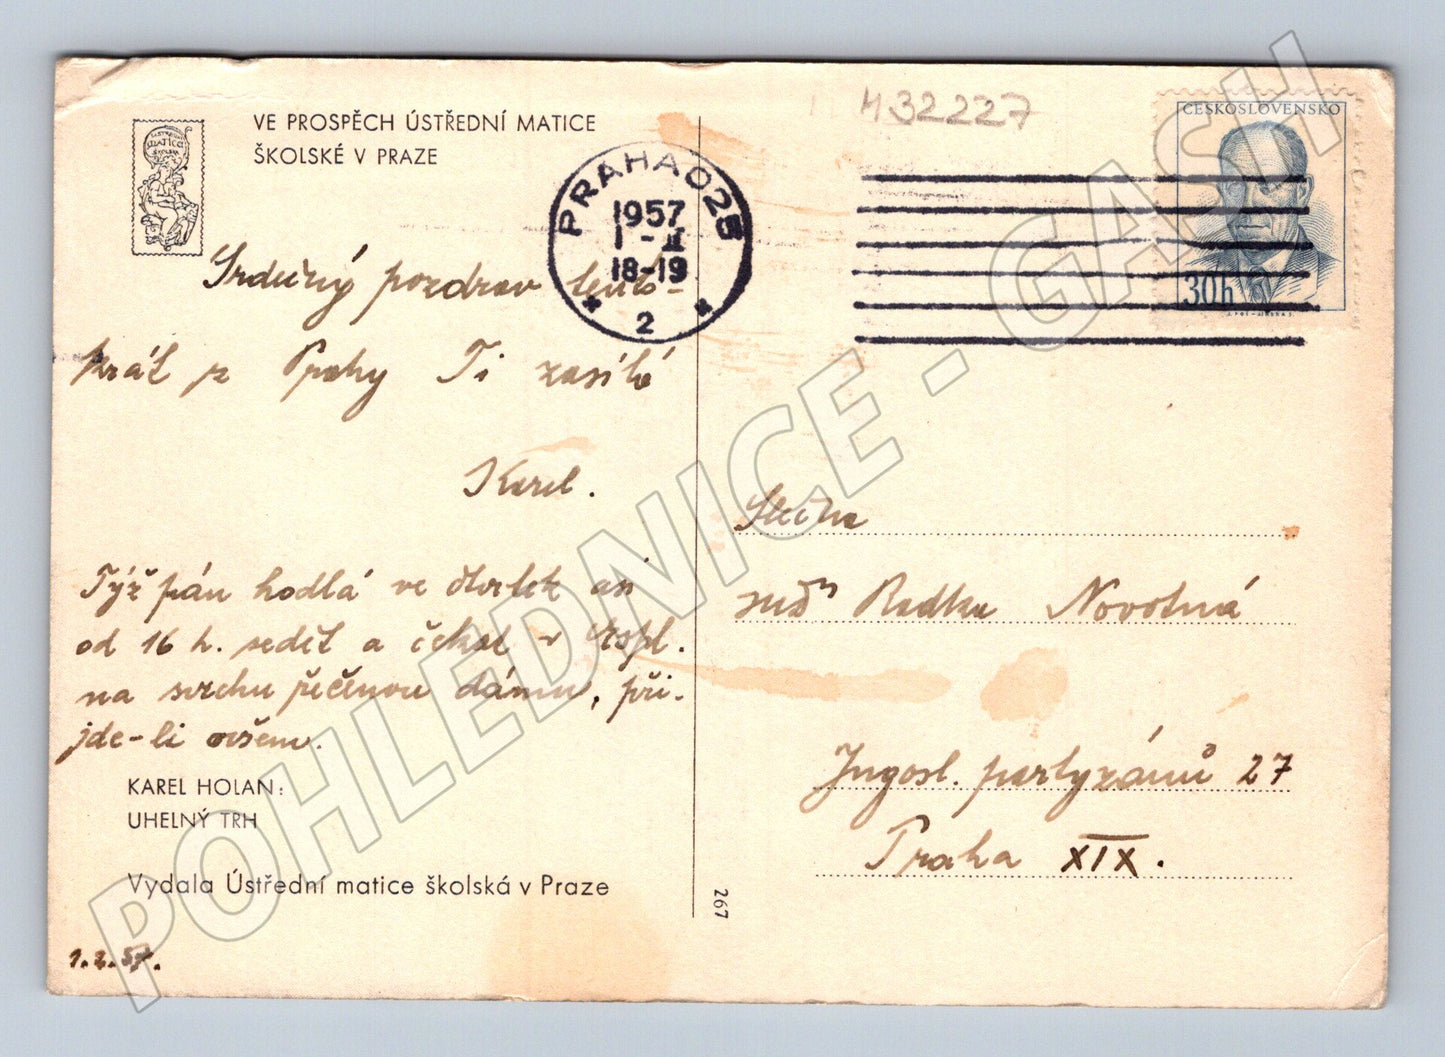 VE PROSPĚCH ÚSTŘEDNÍ MATICE
ŠKOLSKÉ V PRAZE
H32227
ČESKOSLOVENSKO
30h
PRAHA 025
1957
18-19
2
Srdečný pozdrav tento-
krát z Prahy Ti zasílá
Karel.
Týž pán hodlá ve čtvrtek asi
od 16 h. sedět a čekat v
na svrchu řečenou dámu, při-
jde-li ovšem.
KAREL HOLAN:
UHELNÝ TRH
Vydala Ústřední matice školská v Praze
1.2.57.
267
Slečna
Radka Novotná
Jugosl. partyzánů 27
Praha XIX.
POHLEDNICE - GASH